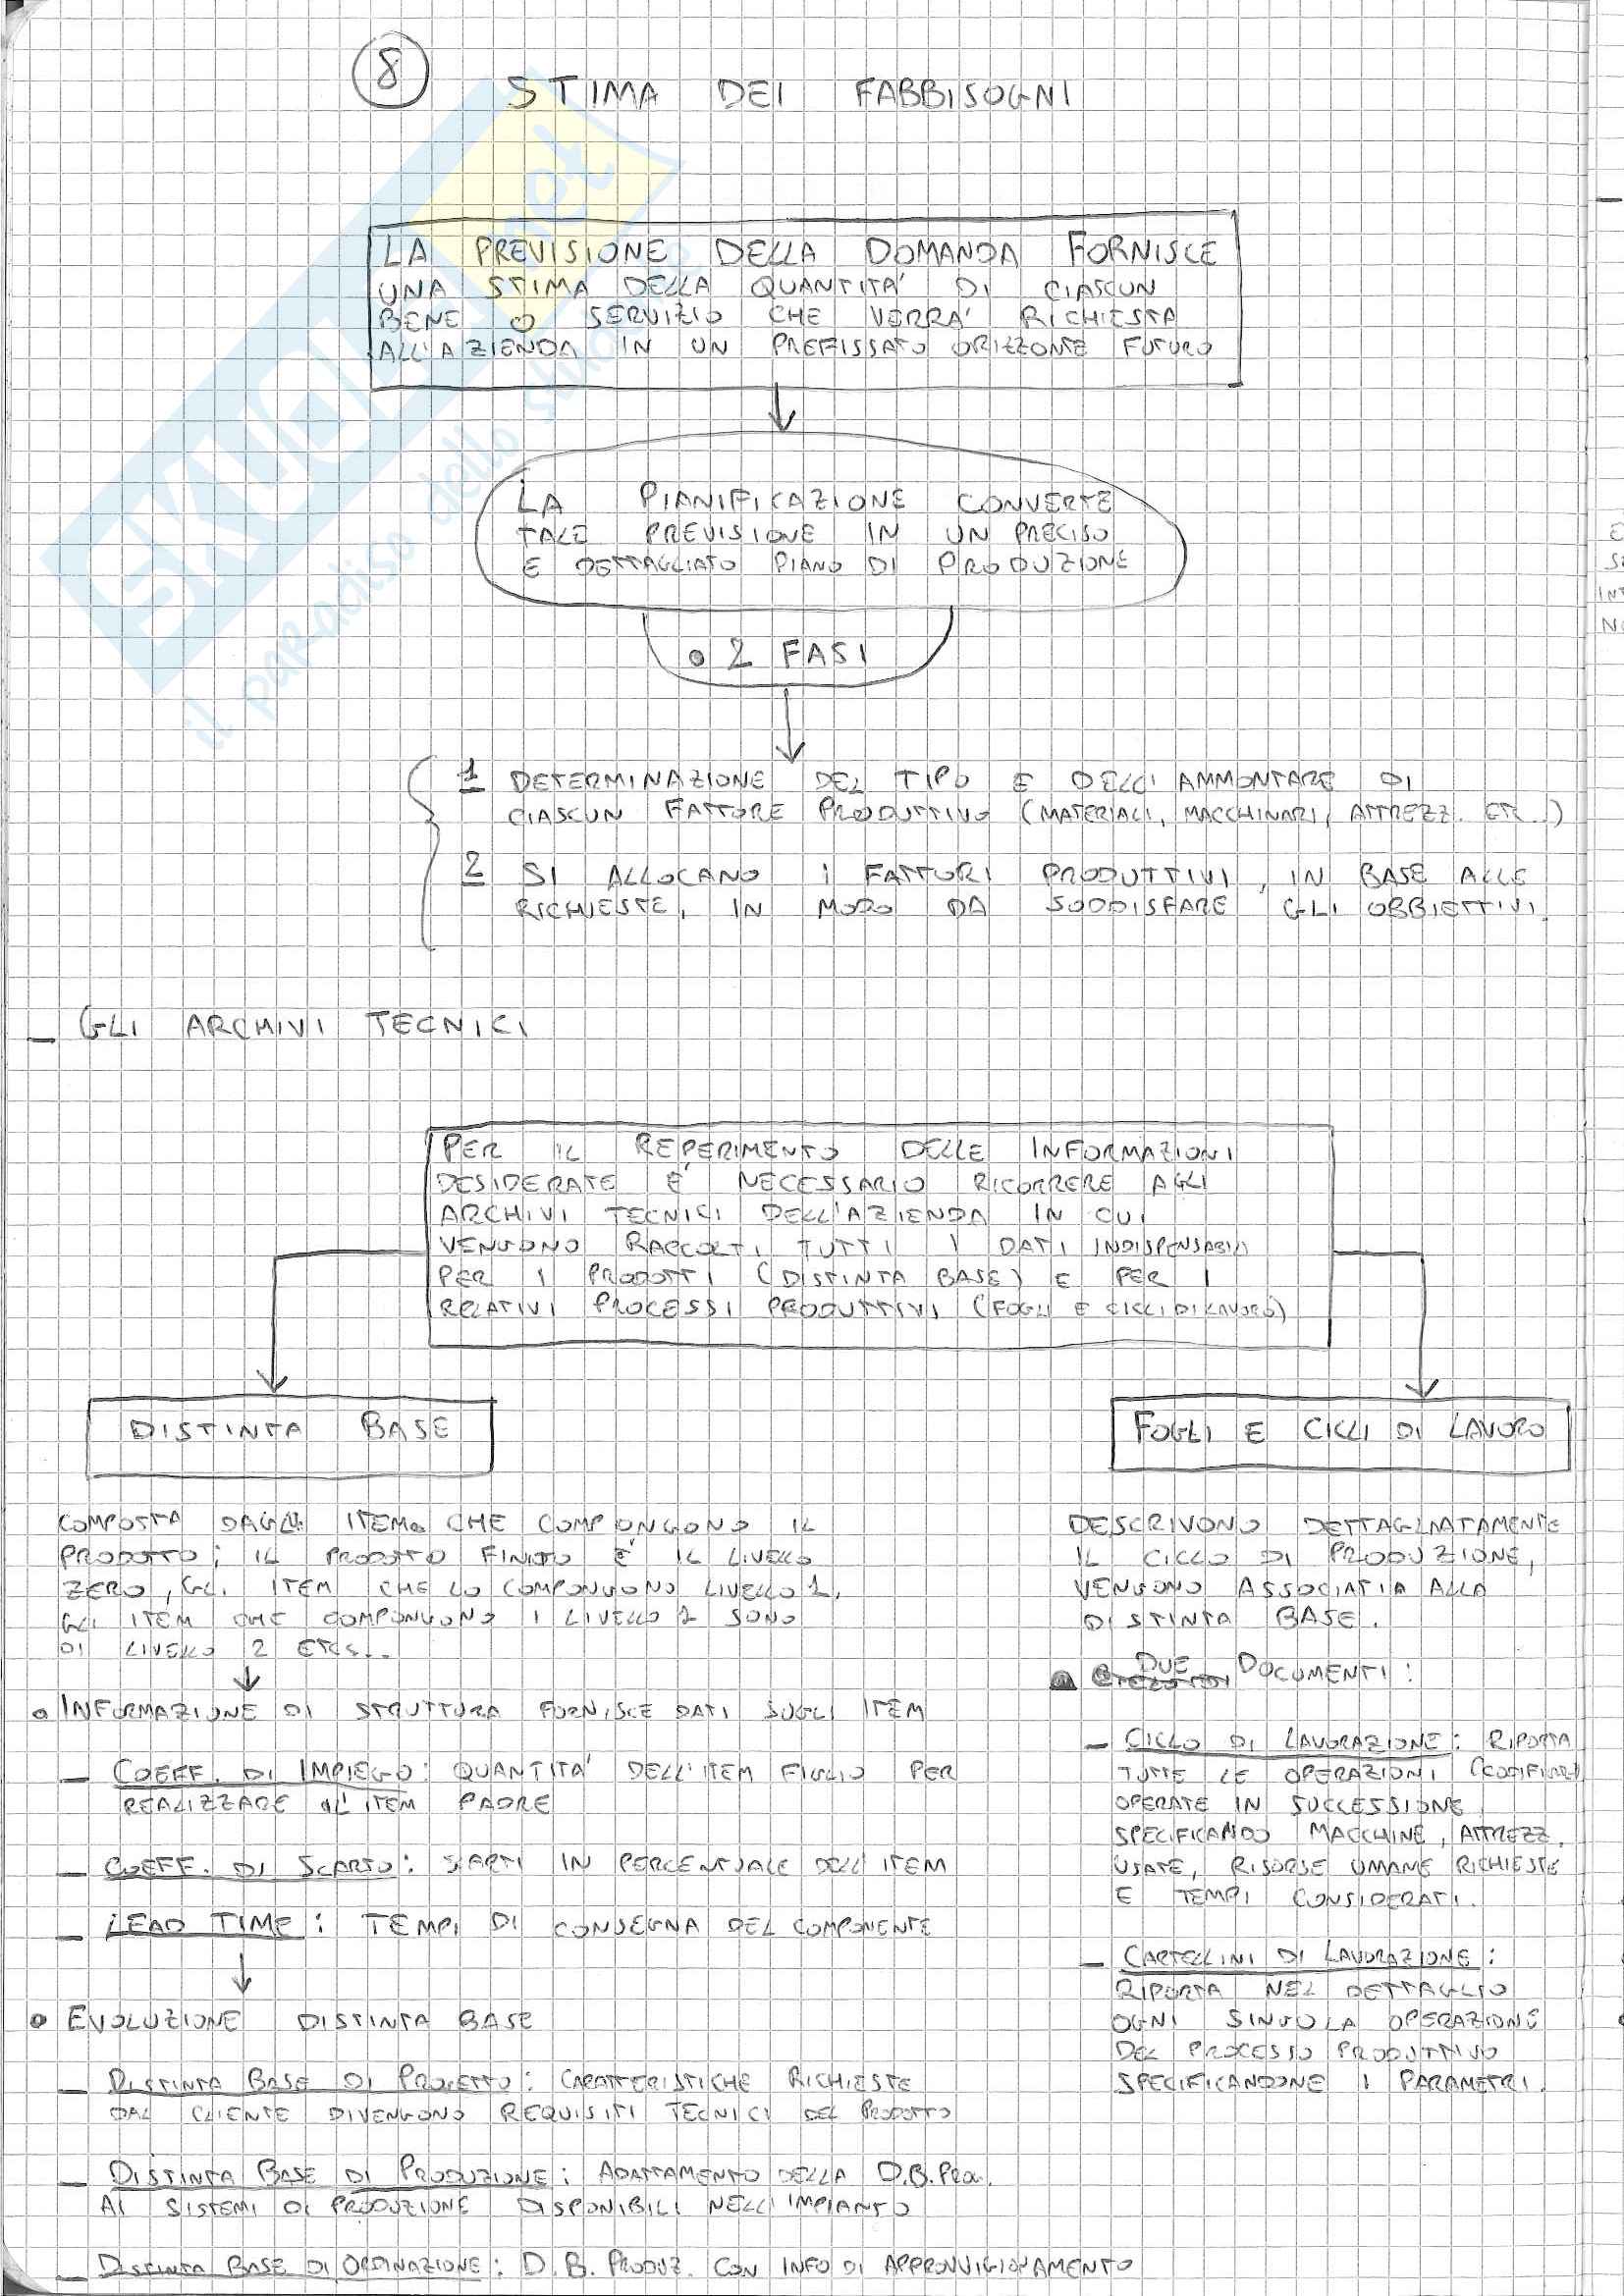 8
STIMA DEI FABBISOGNI
LA PREVISIONE DELLA DOMANDA FORNISCE
UNA STIMA DELLA QUANTITA' DI CIASCUN
BENE O SERVIZIO CHE VERRA' RICHIESTA
ALL'AZIENDA IN UN PREFISSATO ORIZZONTE FUTURO
LA PIANIFICAZIONE CONVERTE
TALE PREVISIONE IN UN PRECISO
E DETTAGLIATO PIANO DI PRODUZIONE
• 2 FASI
1 DETERMINAZIONE DEL TIPO E DELL'AMMONTARE DI
CIASCUN FATTORE PRODUTTIVO (MATERIALI, MACCHINARI, ATTREZZ. ETC..)
2 SI ALLOCANO I FATTORI PRODUTTIVI, IN BASE ALLE
RICHIESTE, IN MODO DA SODDISFARE GLI OBBIETTIVI.
– GLI ARCHIVI TECNICI
PER IL REPERIMENTO DELLE INFORMAZIONI
DESIDERATE E' NECESSARIO RICORRERE AGLI
ARCHIVI TECNICI DELL'AZIENDA IN CUI
VENGONO RACCOLTI TUTTI I DATI INDISPENSABILI
PER I PRODOTTI (DISTINTA BASE) E PER I
RELATIVI PROCESSI PRODUTTIVI (FOGLI E CICLI DI LAVORO)
DISTINTA BASE
COMPOSTA DAGLI ITEM CHE COMPONGONO IL
PRODOTTO; IL PRODOTTO FINITO E' IL LIVELLO
ZERO, GLI ITEM CHE LO COMPONGONO LIVELLO 1,
GLI ITEM CHE COMPONGONO I LIVELLO 1 SONO
DI LIVELLO 2 ETC...
• INFORMAZIONE DI STRUTTURA FORNISCE DATI SUGLI ITEM
– COEFF. DI IMPIEGO: QUANTITA' DELL'ITEM FIGLIO PER
REALIZZARE L'ITEM PADRE
– COEFF. DI SCARTO: SCARTI IN PERCENTUALE DELL'ITEM
– LEAD TIME: TEMPI DI CONSEGNA DEL COMPONENTE
• EVOLUZIONE DISTINTA BASE
– DISTINTA BASE DI PROGETTO: CARATTERISTICHE RICHIESTE
DAL CLIENTE DIVENGONO REQUISITI TECNICI DEL PRODOTTO
– DISTINTA BASE DI PRODUZIONE: ADATTAMENTO DELLA D.B. PROG.
AI SISTEMI DI PRODUZIONE DISPONIBILI NELL'IMPIANTO
– DISTINTA BASE DI ORDINAZIONE: D.B. PRODUZ. CON INFO DI APPROVVIGIONAMENTO
FOGLI E CICLI DI LAVORO
DESCRIVONO DETTAGLIATAMENTE
IL CICLO DI PRODUZIONE,
VENGONO ASSOCIATIA ALLA
DISTINTA BASE.
DUE DOCUMENTI:
– CICLO DI LAVORAZIONE: RIPORTA
TUTTE LE OPERAZIONI (CODIFICARE)
OPERATE IN SUCCESSIONE
SPECIFICANDO MACCHINE, ATTREZZ.
USATE, RISORSE UMANE RICHIESTE
E TEMPI CONSIDERATI.
– CARTELLINI DI LAVORAZIONE:
RIPORTA NEL DETTAGLIO
OGNI SINGOLA OPERAZIONE
DEL PROCESSO PRODUTTIVO
SPECIFICANDONE I PARAMETRI.
SKUOLA.net
il paradiso dello studente